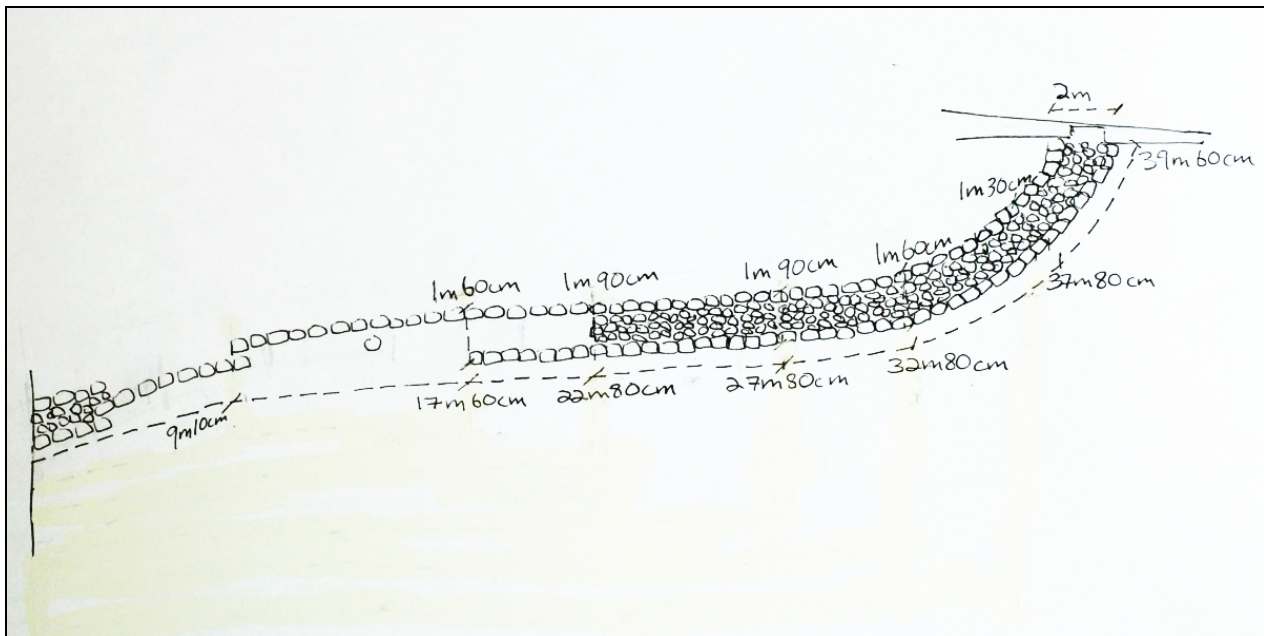 2m
39m60cm
1m30cm
1m60cm
1m90cm
1m90cm
1m60cm
37m80cm
32m80cm
27m80cm
22m80cm
17m60cm
9m10cm